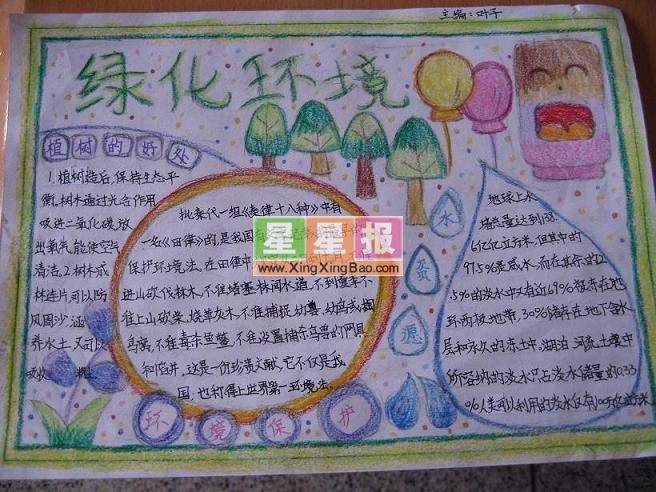 主编:叶子
绿化环境
植树的好处
1.植树造后,保持生态平
衡,树木通过光合作用
吸进二氧化碳,放
出氧气,能使空气
清洁。2.树木成
林连片可以防
风固沙,涵
养水土,又可以
吸收
批秦代一组《秦律十八种》中有
一处《田律》的,是我国有
保护环境法,在田律中
进山砍伐林木,不准堵塞林间水道,不到
准上山砍柴,烧草灰木,不准捕捉幼兽,幼鸟或掏
鸟窝,不准毒杀鱼鳖,不准设置捕杀鸟兽的网具
和陷井,这是一份珍贵文献,它不仅是我
国,也称得上世界第一环境法。
环境保护
水资愿
地球上水
储总量达到138.
6亿亿立方米,但其中的
97.5%是咸水,而在其余的2
.5%的淡水中又有近69%储存在地
球两极地带,30%储存在地下含水
层和永久的冻土中,湖泊河流土壤中
所容纳的淡水只占淡水储量的0.33
%人类可以利用的淡水仅有
星星报
www.XingXingBao.com